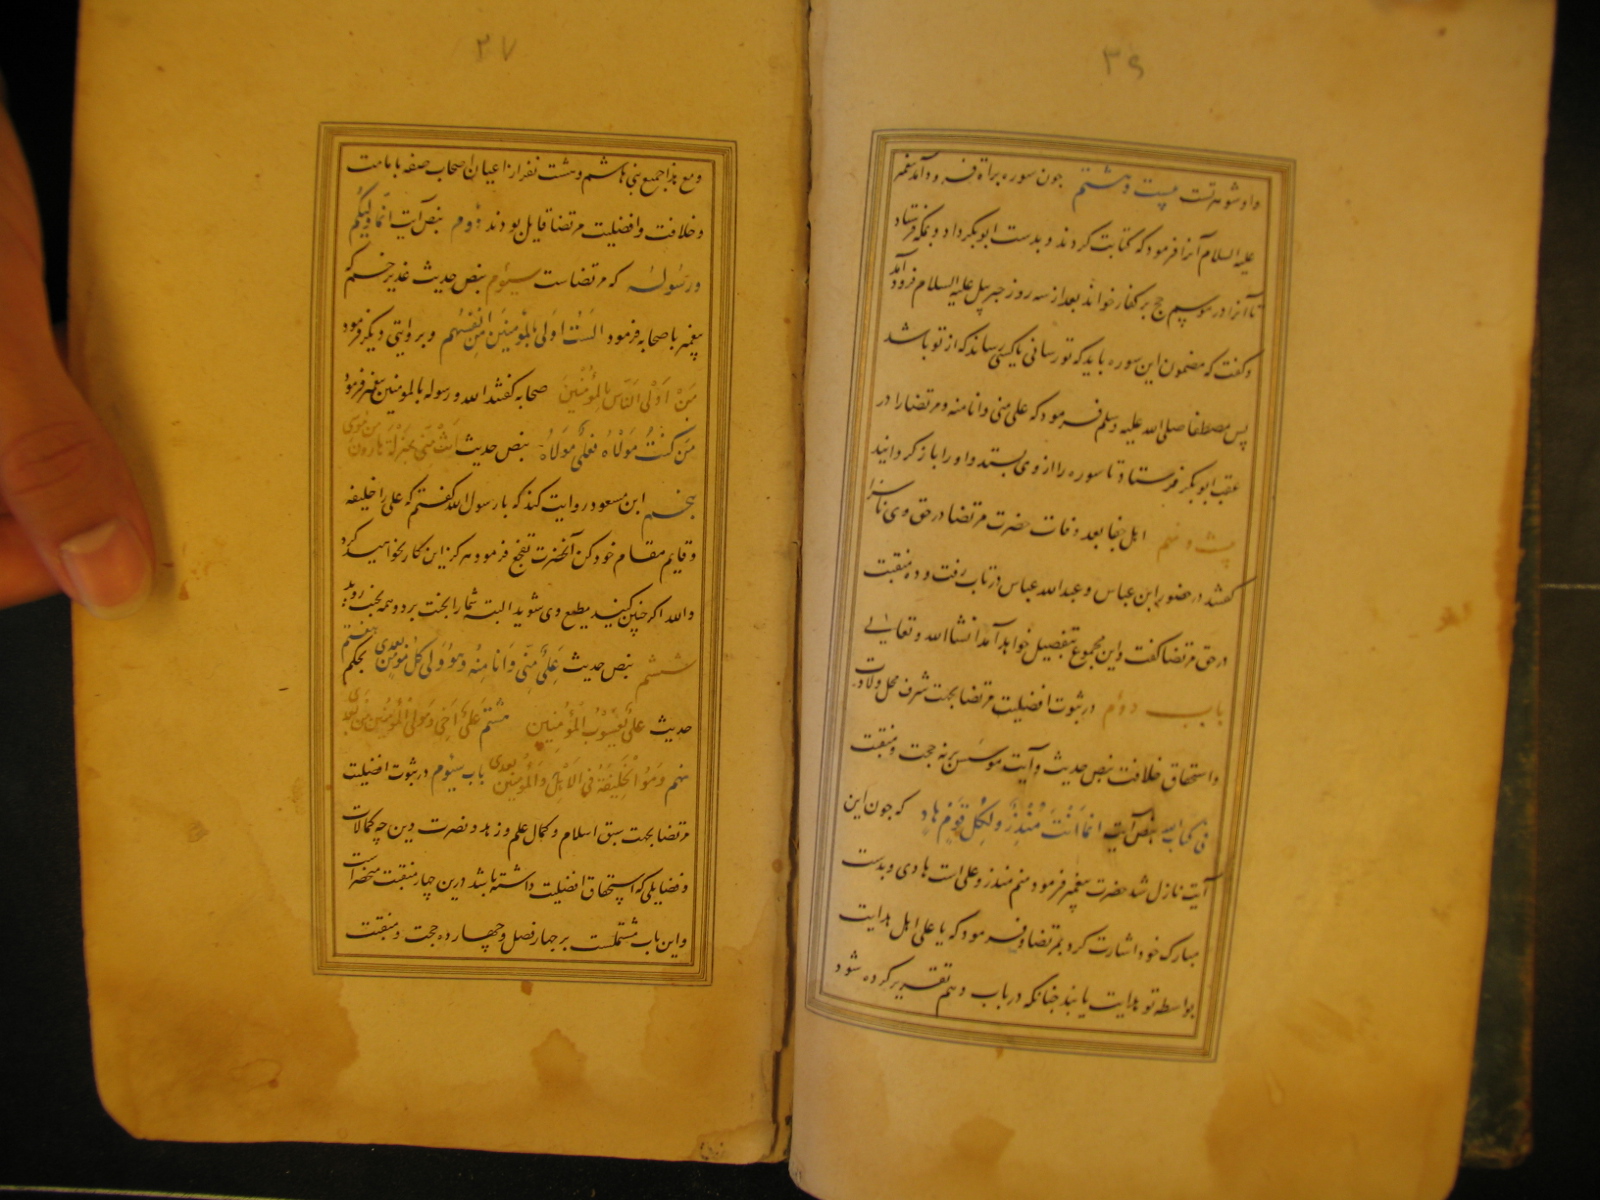 ۳۶
داد شو هر تست بیست و هشتم چون سوره براة فرود آمد پیغمبر
علیه السلام آنرا فرمود که کتابت کردند و بدست ابوبکر داد و بمکه فرستاد
تا آنرا در موسم حج بر کفار خواند بعد از سه روز جبرییل علیه السلام فرود آمد
و گفت که مضمون این سوره باید که تو رسانی یا کسی رساند که از تو باشد
پس مصطفا صلی الله علیه وسلم فرمود که علی منی و انا منه و مرتضا را در
عقب ابوبکر فرستاد تا سوره را از وی بستد و او را باز گردانید
بیست و نهم اهل جفا بعد وفات حضرت مرتضا در حق وی ناسزا
گفتند در حضور ابن عباس و عبدالله عباس در تاب رفت و ده منقبت
در حق مرتضا گفت و این مجموع بتفصیل خواهد آمد انشاالله و تعالی
باب دوم در ثبوت افضلیت مرتضا بجهت شرف محل ولادت
و استحقاق خلافت بنص حدیث و آیت موسس بر نه حجت و منقبت
فی کتاب الله بنص آیت انما انت منذر ولکل قوم هاد که چون این
آیت نازل شد حضرت پیغمبر فرمود منم منذر و علی است هادی و بدست
مبارک خود اشارت کرد بمرتضا و فرمود که یا علی اهل هدایت
بواسطه تو هدایت یابند چنانکه در باب دهم تقریر کرده شود
۳۷
و مع هذا جمیع بنی هاشم و هشت نفر از اعیان اصحاب صفه بامامت
و خلافت و افضلیت مرتضا قایل بودند دوم بنص آیت انما ولیکم
ورسوله که مرتضاست سیوم بنص حدیث غدیر خم که
پیغمبر با صحابه فرمود الست اولی بالمؤمنین من انفسهم و بروایتی دیگر فرمود
من اولی الناس بالمؤمنین صحابه گفتند الله و رسوله بالمومنین پیغمبر فرمود
من کنت مولاه فعلی مولاه بنص حدیث انت منی بمنزلة هارون من موسی
پنجم ابن مسعود روایت کند که با رسول الله گفتم که علی را خلیفه
و قایم مقام خود کن آنحضرت تفجع فرمود و هرگز این کار نخواهید کرد
والله اگر چنین کنید مطیع وی شوید البته شما را بجنت برد و همه بجنت روید
ششم بنص حدیث علی منی وانا منه وهو ولی کل مؤمن بعدی هفتم بحکم
حدیث علی یعسوب المؤمنین هشتم علی اخی ومولی المؤمنین من بعدی
نهم وهو الخلیفة فی الاهل والمؤمنین بعدی باب سیوم در ثبوت افضلیت
مرتضا بجهت سبق اسلام و کمال علم و زهد و نصرت دین چه کمالات
و فضایلی که استحقاق افضلیت داشته باشد درین چهار منقبت منحصر است
و این باب مشتملست بر چهار فصل و چهارده حجت و منقبت